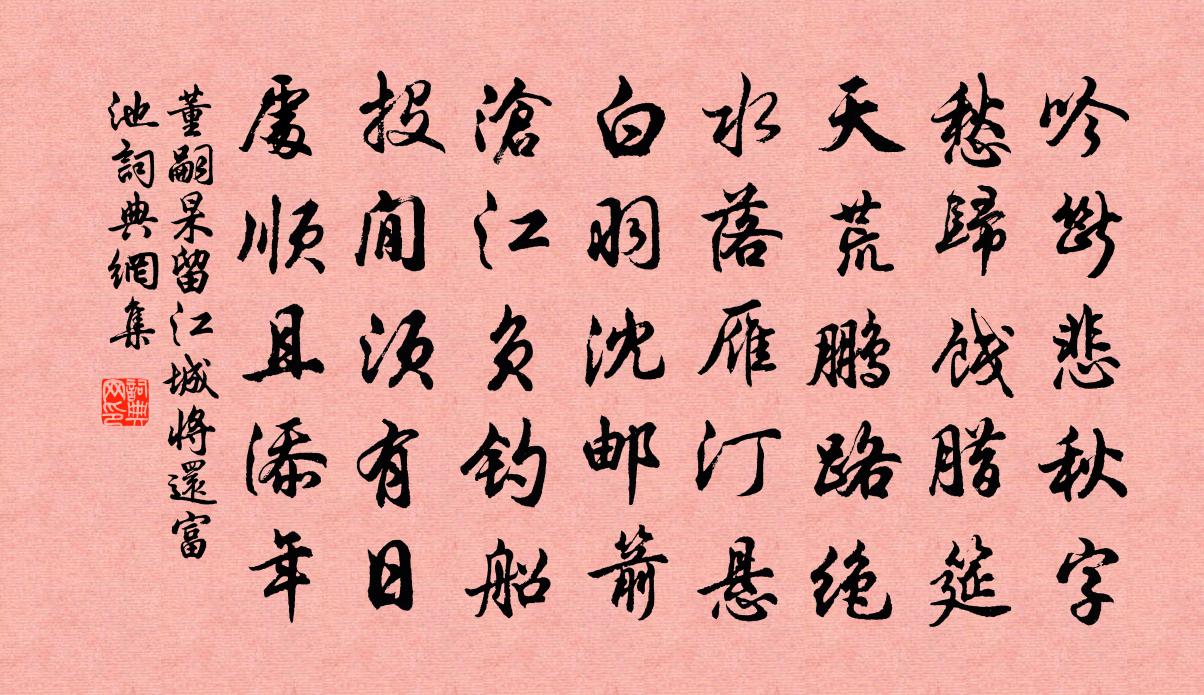 吟断悲秋字
愁歸餞腊筵
天荒鹏路绝
水落雁汀悬
白羽沈邮箭
滄江负钓船
投闲须有日
處顺且添年
董嗣杲留江城將還富
池詞典網集
詞典网印